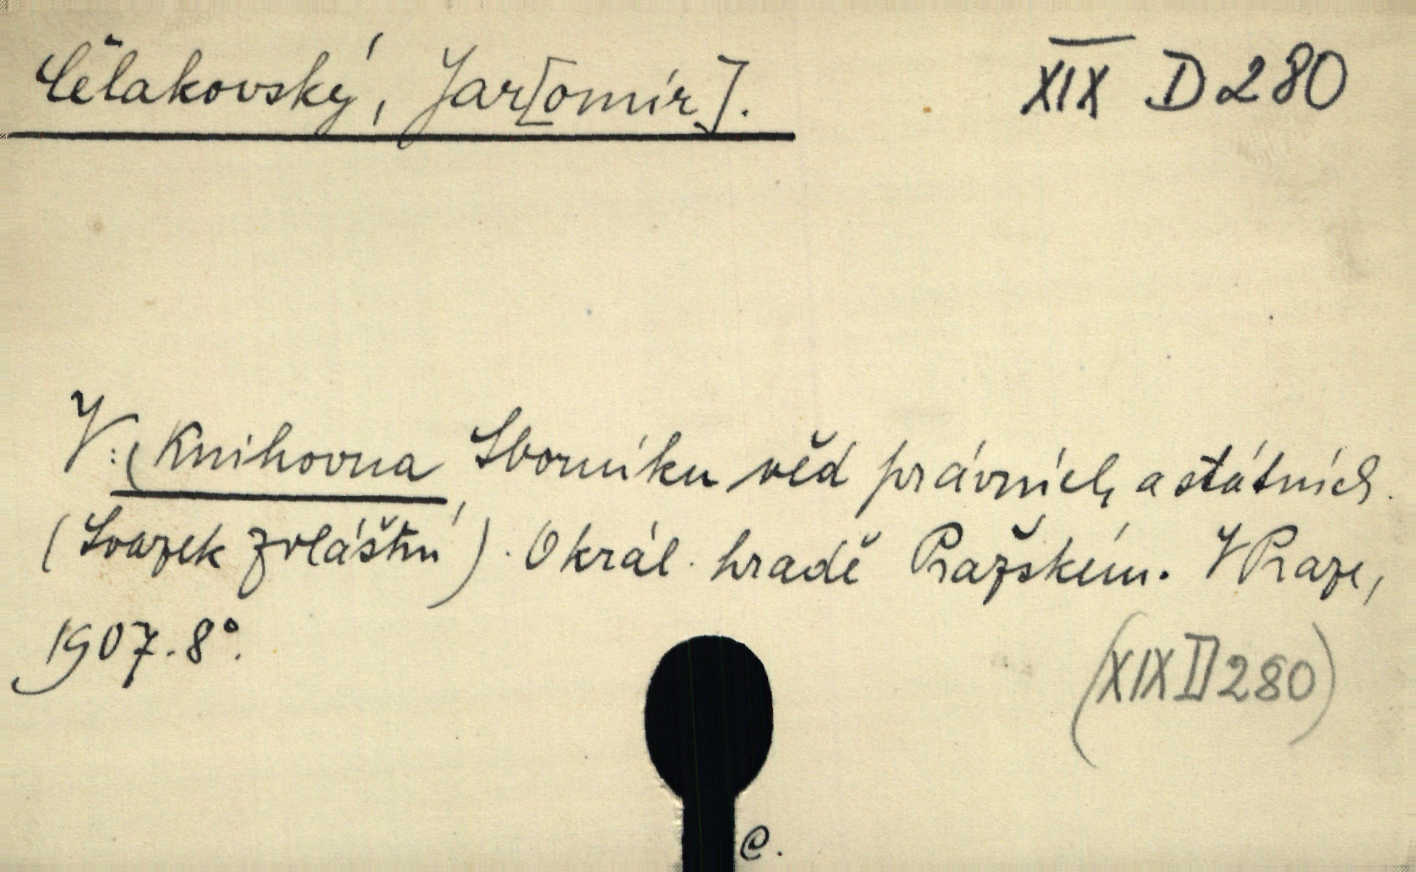 Čelakovský, Jar[omír]. XIX D 280
V: (Knihovna Sborníku věd právních a státních.
(Svazek zvláštní). O král. hradě Pražském. V Praze,
1907. 8°.
(XIX D 280)
C.